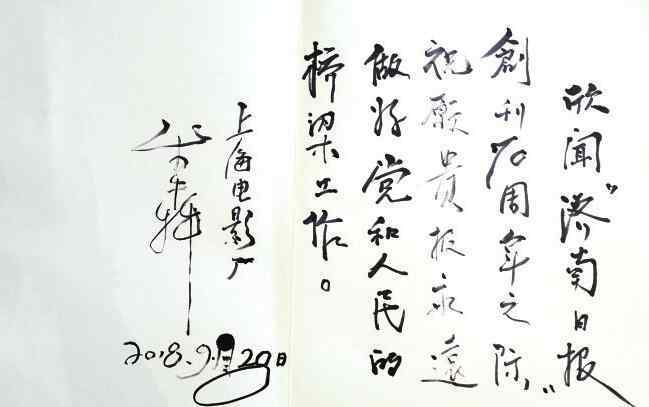 欣闻“济南日报”
創刊70周年之际，
祝愿貴报永遠
做好党和人民的
桥梁工作。
上海电影厂
2018.9月29日